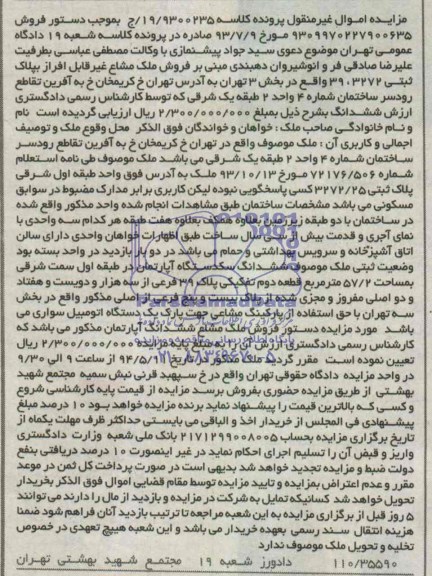 مزایـده امـوال غیرمنقول پرونده کلاسـه ۱۹/۹۳۰۰۲۳۵/ج بموجب دستـور فروش
۹۳۰۹۹۷۰۲۲۷۹۰۰۶۳۵ مـورخ ۹۳/۷/۹ صادره در پرونده کلاسـه شعبه ۱۹ دادگاه
عمومـی تهـران موضوع دعوی سیـد جواد پیشنمازی با وکالت مصطفی عباسـی بطرفیت
علیرضا صادقی فر و انوشیـروان دهبندی مبنی بر فروش ملـک مشاع غیرقابل افراز بپلاک
ثبتـی ۳۹٫۳۲۷۲ واقـع در بخش ۳ تهران به آدرس تهران خ کریمخان خ به آفرین تقاطع
رودسر ساختمان شماره ۴ واحد ۲ طبقه یک شرقی که توسط کارشناس رسمی دادگستری
ارزش ششدانـگ بشرح ذیل بمبلغ ۲/۳۰۰/۰۰۰/۰۰۰ ریال ارزیابی گردیده است نام
و نـام خانوادگـی صاحب ملـک : خواهان و خواندگان فوق الذکر محل وقوع ملک و توصیف
اجمالی و کاربری آن : ملک موصوف واقع در تهران خ کریمخان خ به آفرین تقاطع رودسـر
سـاختمان شـماره ۴ واحد ۲ طبقه یک شـرقی می باشد ملک موصوف طی نامه استعلام
شماره ۷۲۱۷۶/۵۰۶ مورخ ۹۳/۱۰/۱۳ ملـک به آدرس فوق واحد طبقه اول شـرقی
پلاک ثبتی ۳۲۷۲/۲۵ کسی پاسخگویی نبوده لیکن کاربری برابر مدارک مضبوط در سوابق
مسکونی می باشد مشخصات ساختمان طبق مشاهدات انجام شده واحد مذکور واقع شده
در سـاختمان با دو طبقه زیرزمین بعلاوه همکف بعلاوه هفت طبقه هر کدام سـه واحدی با
نمای آجری و قدمت بیش از سـی سال ساخت طبق اظهارات خواهان واحدی دارای سالن
اتاق آشپزخانه و سرویس بهداشتی و حمام می باشد در دو بار بازدید در واحد بسته بود
وضعیت ثبتی ملک موصوف ششـدانگ یکدسـتگاه آپارتمان در طبقه اول سمت شرقی
بمساحت ۵۷/۲ مترمربع قطعه دوم تفکیکی پلاک ۳۹ فرعی از سه هزار و دویست و هفتاد
و دو اصلی مفروز و مجزی شده از پلاک بیست و پنج فرعی از اصلی مذکور واقع در بخش
سـه تهران با حق استفاده از پارکینگ مشاعی جهت پارک یک دستگاه اتومبیل سواری می
باشـد مورد مزایده دستـور فـروش ملک مشاع ششدانـگ آپارتمان مذکور می باشد که
کارشناس رسمی دادگستری ارزش آن را به مبلغ پایه مزایده ۲/۳۰۰/۰۰۰/۰۰۰ ریال
تعیین نموده اسـت مقرر گردید ملک مذکور در تاریخ ۹۴/۵/۱۹ از ساعت ۹ الی ۹/۳۰
در واحد مزایده دادگاه حقوقی تهران واقع در خ سـپهبد قرنی نبش سمیه مجتمع شهید
بهشتـی از طریق مزایده حضوری بفروش برسـد مزایده از قیمت پایه کارشناسـی شروع
و کسـی کـه بالاترین قیمت را پیشنهاد نماید برنده مزایده خواهد بـود ۱۰ درصد مبلغ
پیشنهادی فی المجلس از خریدار اخذ و الباقی می بایستـی حداکثر ظرف مهلت یکماه از
تاریخ برگزاری مزایده بحساب ۲۱۷۱۲۹۹۰۰۸۰۰۵ بانک ملی شعبه وزارت دادگستری
واریز و قبض آن را تسلیم اجرای احکام نماید در غیر اینصورت ۱۰ درصد دریافتی بنفع
دولت ضبط و مزایده تجدید خواهد شد بدیهی است در صورت پرداخت کل ثمن در موعد
مقرر و عدم اعتراض بمزایده و تایید مزایده توسط مقام قضایی اموال فوق الذکر بخریدار
تحویل خواهد شد کسانیکه تمایل به شرکت در مزایده و بازدید از مال را دارند می توانند
۵ روز قبل از برگزاری مزایده به این شعبه مراجعه تا ترتیب بازدید آنان فراهم شود ضمنا
هزینه انتقال سند رسمی بعهده خریدار می باشد و این شعبه هیچ تعهدی در خصوص
تخلیه و تحویل ملک موصوف ندارد
۱۱۰/۳۵۵۹۰ دادورز شـعبه ۱۹ مجتمـع شـهید بهشـتی تهـران